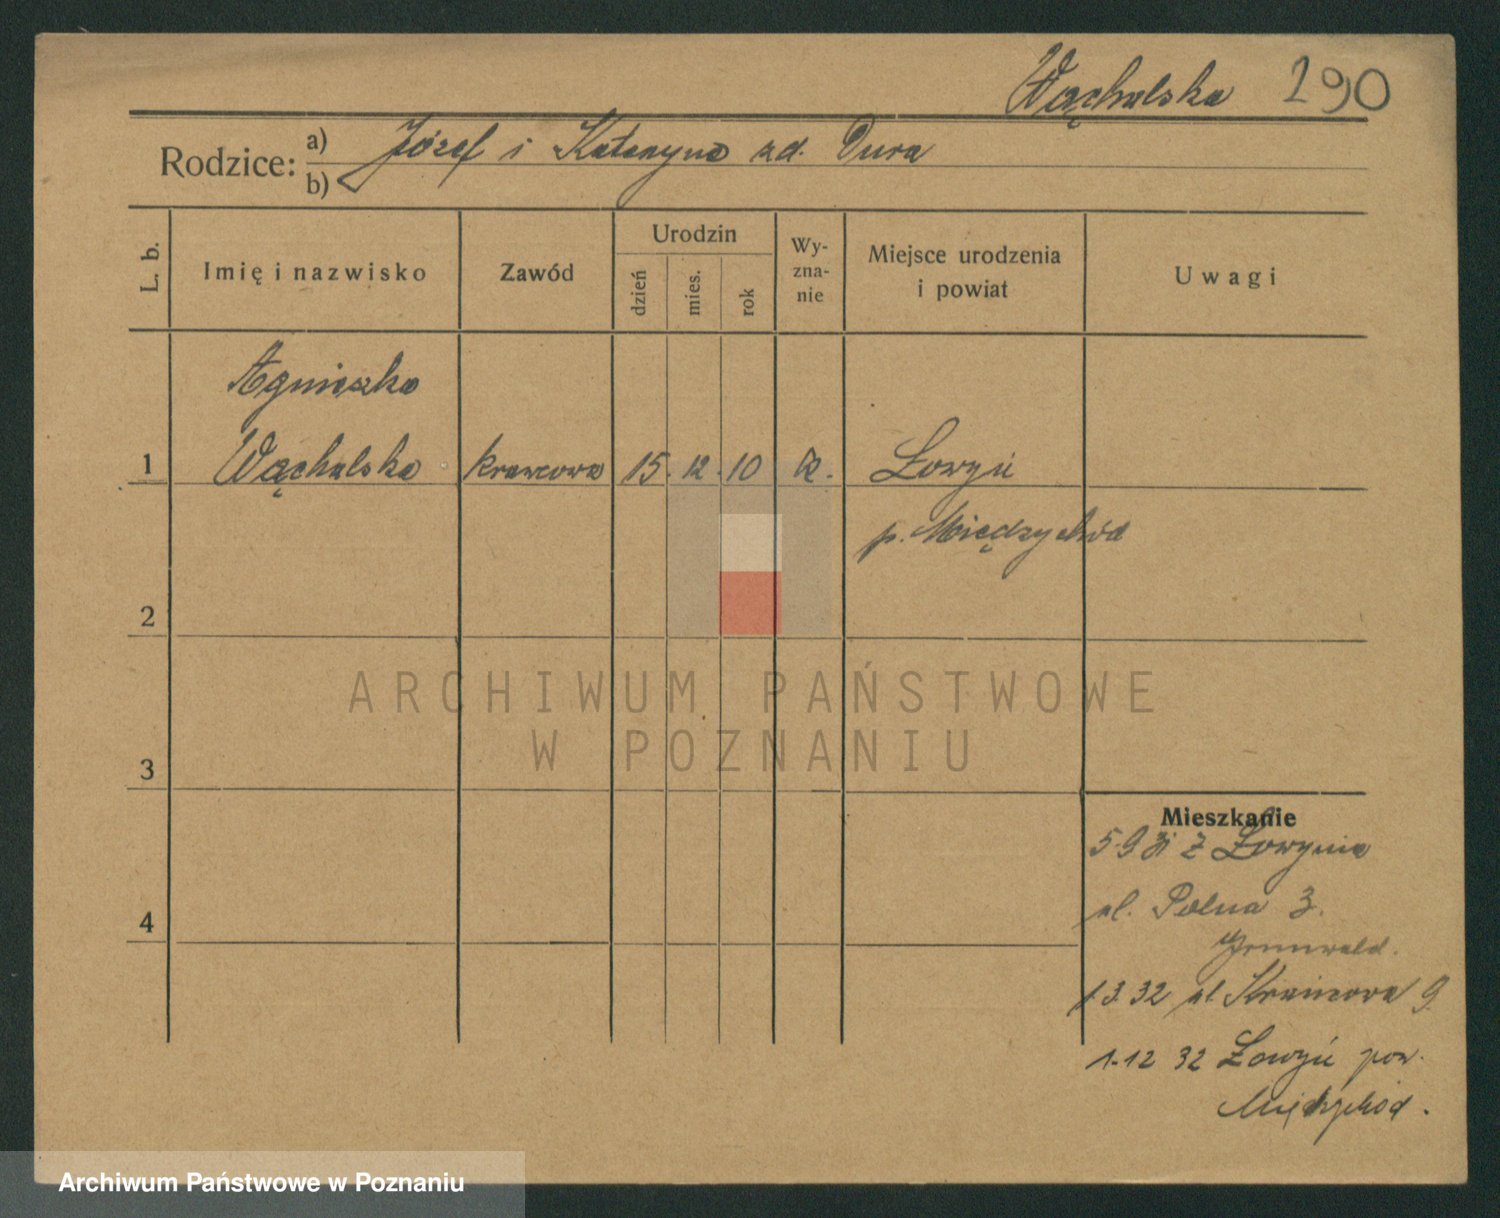 Wąchalska 190
Rodzice: a) Józef i Katarzyna zd. Dura
b)
L. b. Imię i nazwisko Zawód Urodzin dzień mies. rok Wy-zna-nie Miejsce urodzenia i powiat Uwagi
Agnieszka
1 Wąchalska krawcowa 15. 12. 10 R. Łowyń
p. Międzychód
2
ARCHIWUM PAŃSTWOWE
W POZNANIU
3
Mieszkanie
5-9 31 z Łowynia
4 ul. Polna 3.
Grunwald.
1.3.32 ul 9.
1-12 32 Łowyń pow.
Międzychód.
Archiwum Państwowe w Poznaniu